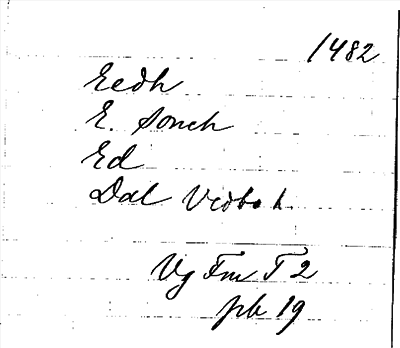 1482
Eedh
E. Sonch
Ed
Dal Vedbo h.
Vg Fm T 2
pb 19